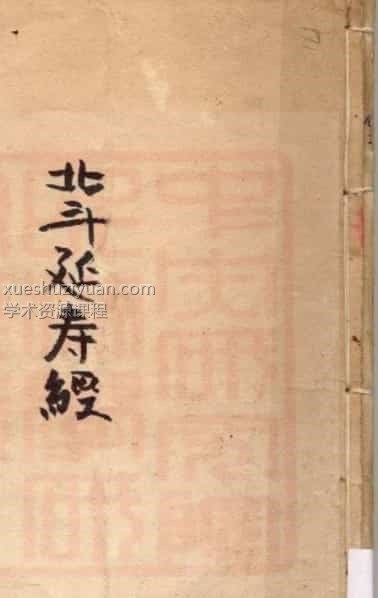 北斗延寿經
xueshuziyuan.com
学术资源课程